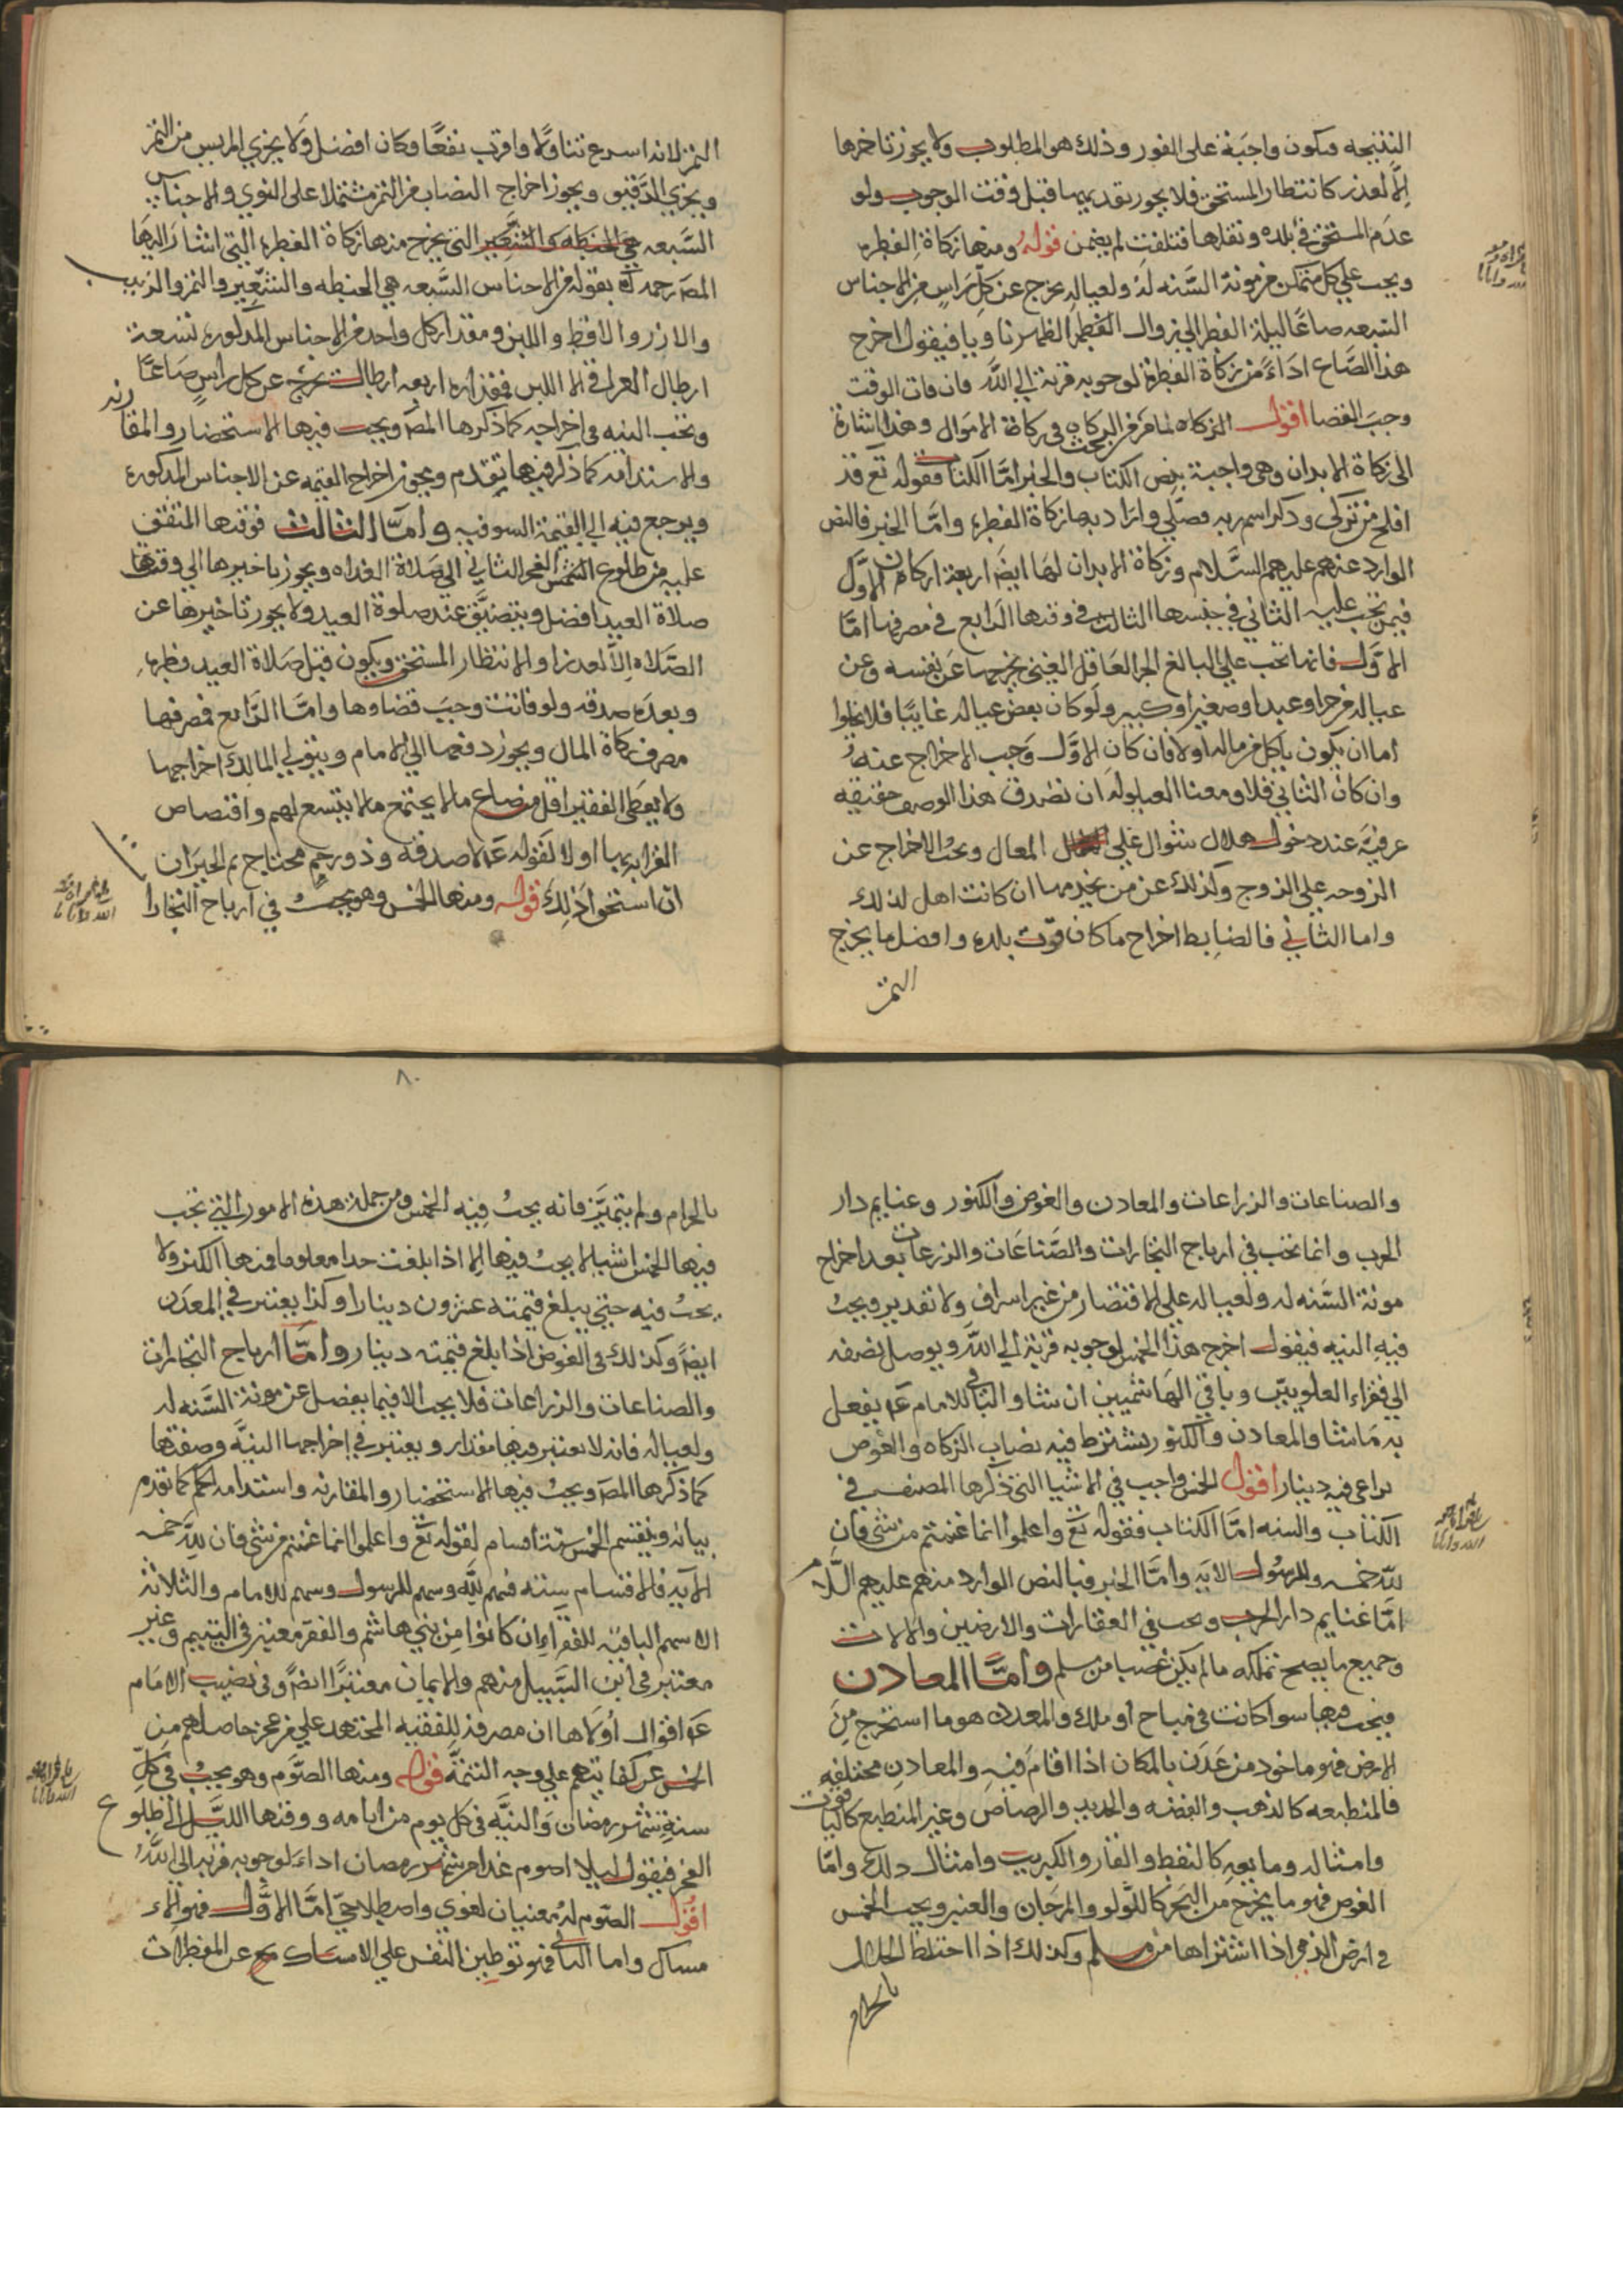 النتيجه فتكون واجبة على الفور وذلك هو المطلوب ولا يجوز تاخيرها
الا لعذر كانتظار المستحق فلا يجوز تقديمها قبل وقت الوجوب ولو
عدم المستحق في بلده ونقلها فتلفت لم يضمن قوله ومنها زكاة الفطره
ويجب على كل متمكن من مونة السنه له ولعياله يخرج عن كل راس من الاجناس
السبعه صاعا ليلة الفطر الى زوال الفطر الظهر ناويا فيقول اخرج
هذا الصاع اداء من زكاة الفطرة لوجوبه قربة الى الله فان فات الوقت
وجب القضا اقول الزكاه لما فرغ من البحث في زكاة الاموال وهذا اشارة
الى زكاة الابدان وهي واجبة بنص الكتاب والخبر اما الكتاب فقوله تع قد
افلح من تزكى وذكر اسم ربه فصلى واراد بها زكاة الفطره واما الخبر فالنص
الوارد عنهم عليهم السلام وزكاة الابدان لها ايضا اربعة اركان الاول
فيمن تجب عليه الثاني في جنسها الثالث في وقتها الرابع في مصرفها اما
الاول فانها تجب على البالغ الحر العاقل الغني يخرجها عن نفسه وعن
عياله من حر او عبد او صغير او كبير ولو كان بعض عياله غايبا فلا يخلوا
اما ان يكون ياكل من ماله اولا فان كان الاول وجب الاخراج عنه
وان كان الثاني فلا ومعنا العيلوله ان تصدق هذا الوصف حقيقه
عرفية عند دخول هلال شوال على المعال ويجب الاخراج عن
الزوجه على الزوج وكذلك عن من يخدمها ان كانت اهل لذلك
واما الثاني فالضابط اخراج ما كان قوت بلده وافضل ما يخرج
التمر
التمر لانه اسرع تناولا واقرب نفعا وكان افضل ولا يجزي المربس من التمر
ويجزي الدقيق ويجوز اخراج النصاب من التمر مشتملا على النوي والاجناس
السبعه هي الحنطه والشعير التي يخرج منها زكاة الفطره التي اشار اليها
المصر رحمه الله بقوله من الاجناس السبعه هي الحنطه والشعير والتمر والزبيب
والارز والاقط واللبن ومقدار كل واحد من الاجناس المذكوره تسعة
ارطال العراقي الا اللبن فمقداره اربعه ارطال يخرج عن كل راس صاعا
وتجب النيه في اخراجه كما ذكرها المص ويجب فيها الاستحضار والمقارنه
والاستدامه كما ذكر فيما تقدم ويجوز اخراج القيمه عن الاجناس المذكوره
ويرجع فيه الى القيمة السوقيه واما الثالث فوقتها المتفق
عليه من طلوع الشمس الفجر الثاني الى صلاة الغداه ويجوز تاخيرها الى وقتها
صلاة العيد افضل ويتضيق عند صلوة العيد ولا يجوز تاخيرها عن
الصلاه الا لعذر او لانتظار المستحق ويكون قبل صلاة العيد فطره
وبعده صدقه ولو فاتت وجب قضاوها واما الرابع فمصرفها
مصرف زكاة المال ويجوز دفعها الى الامام ويتولى المالك اخراجها
ولا يعطى الفقير اقل من صاع مالا يجتمع مالا يتسع لهم واقتصاص
القرابه بها اولا لقوله ع لا صدقه وذو رحم محتاج ثم الجيران
ان استحقوا ذلك قوله ومنها الخمس وهو يجب في ارباح التجارا
والصناعات والزراعات والمعادن والغوص والكنوز وغنايم دار
الحرب وانما تجب في ارباح التجارات والصناعات والزرعات بعد اخراج
مونة السنه له ولعياله على الاقتصار من غير اسراف ولا تقدير ويجب
فيه النيه فيقول اخرج هذا الخمس لوجوبه قربة الى الله ويوصل نصفه
الى فقراء العلويين وباقي الهاشميين ان شا والباقي للامام ع يفعل
به ما شا والمعادن والكنوز يشترط فيه نصاب الزكاه والغوص
يراعى فيه دينار اقول الخمس واجب في الاشيا التي ذكرها المصنف في
الكتاب والسنه اما الكتاب فقوله تع واعلموا انما غنمتم من شي فان
لله خمسه وللرسول الايه واما الخبر فبالنص الوارد منهم عليهم السلام
اما غنايم دار الحرب ويجب في العقارات والارضين والالات
وجميع ما يصح تملكه مالم يكن غصبا من مسلم واما المعادن
فيجب فيها سوا كانت في مباح او ملك والمعدن هو ما استخرج من
الارض فهو ماخود من عدن بالمكان اذا اقام فيه والمعادن مختلفه
فالمنطبعه كالذهب والفضه والحديد والرصاص وغير المنطبع كالياقوت
وامثاله ومايعه كالنفط والقار والكبريت وامثال ذلك واما
الغوص فهو ما يخرج من البحر كاللولو والمرجان والعنبر ويجب الخمس
في ارض الذمي اذا اشتراها من مسلم وكذلك اذا اختلط الحلال
بالحرام
٨٠
بالحرام ولم يتميز فانه يجب فيه الخمس ومن جملة هذه الامور التي تجب
فيها الخمس اشيا لا يجب فيها الا اذا بلغت حدا معلوما فمنها الكنز ولا
يجب فيه حتى يبلغ قيمته عشرون دينارا وكذا يعتبر في المعدن
ايضا وكذلك في الغوص اذا بلغ قيمته دينار واما ارباح التجارات
والصناعات والزراعات فلا يجب الا فيما يفضل عن مونة السنه له
ولعياله فانه لا يعتبر فيها مقدار ويعتبر في اخراجها النية وصفتها
كما ذكرها المص ويجب فيها الاستحضار والمقارنه واستدامه الحكم كما تقدم
بيانه وينقسم الخمس ستة اقسام لقوله تع واعلموا انما غنمتم من شي فان لله خمسه
الايه فالاقسام سته فسهم لله وسهم للرسول وسهم للامام والثلاثة
الاسهم الباقيه للفقراء ان كانوا من بني هاشم والفقر معتبر في اليتيم وغير
معتبر في ابن السبيل منهم والايمان معتبرا ايضا وفي نصيب الامام
ع اقوال اولاها ان مصرفه للفقيه المجتهد على من عجز حاصلهم من
الخمس عن كفايتهم على وجه التتمة قوله ومنها الصوم وهو يجب في كل
سنة شهر رمضان والنية في كل يوم من ايامه ووقتها الليل الى طلوع
الفجر فيقول ليلا اصوم غدا من شهر رمضان اداء لوجوبه قربة الى الله
اقول الصوم له معنيان لغوي واصطلاحي اما الاول فهو الام
مساك واما الثاني فهو توطين النفس على الامساك عن المفطرات